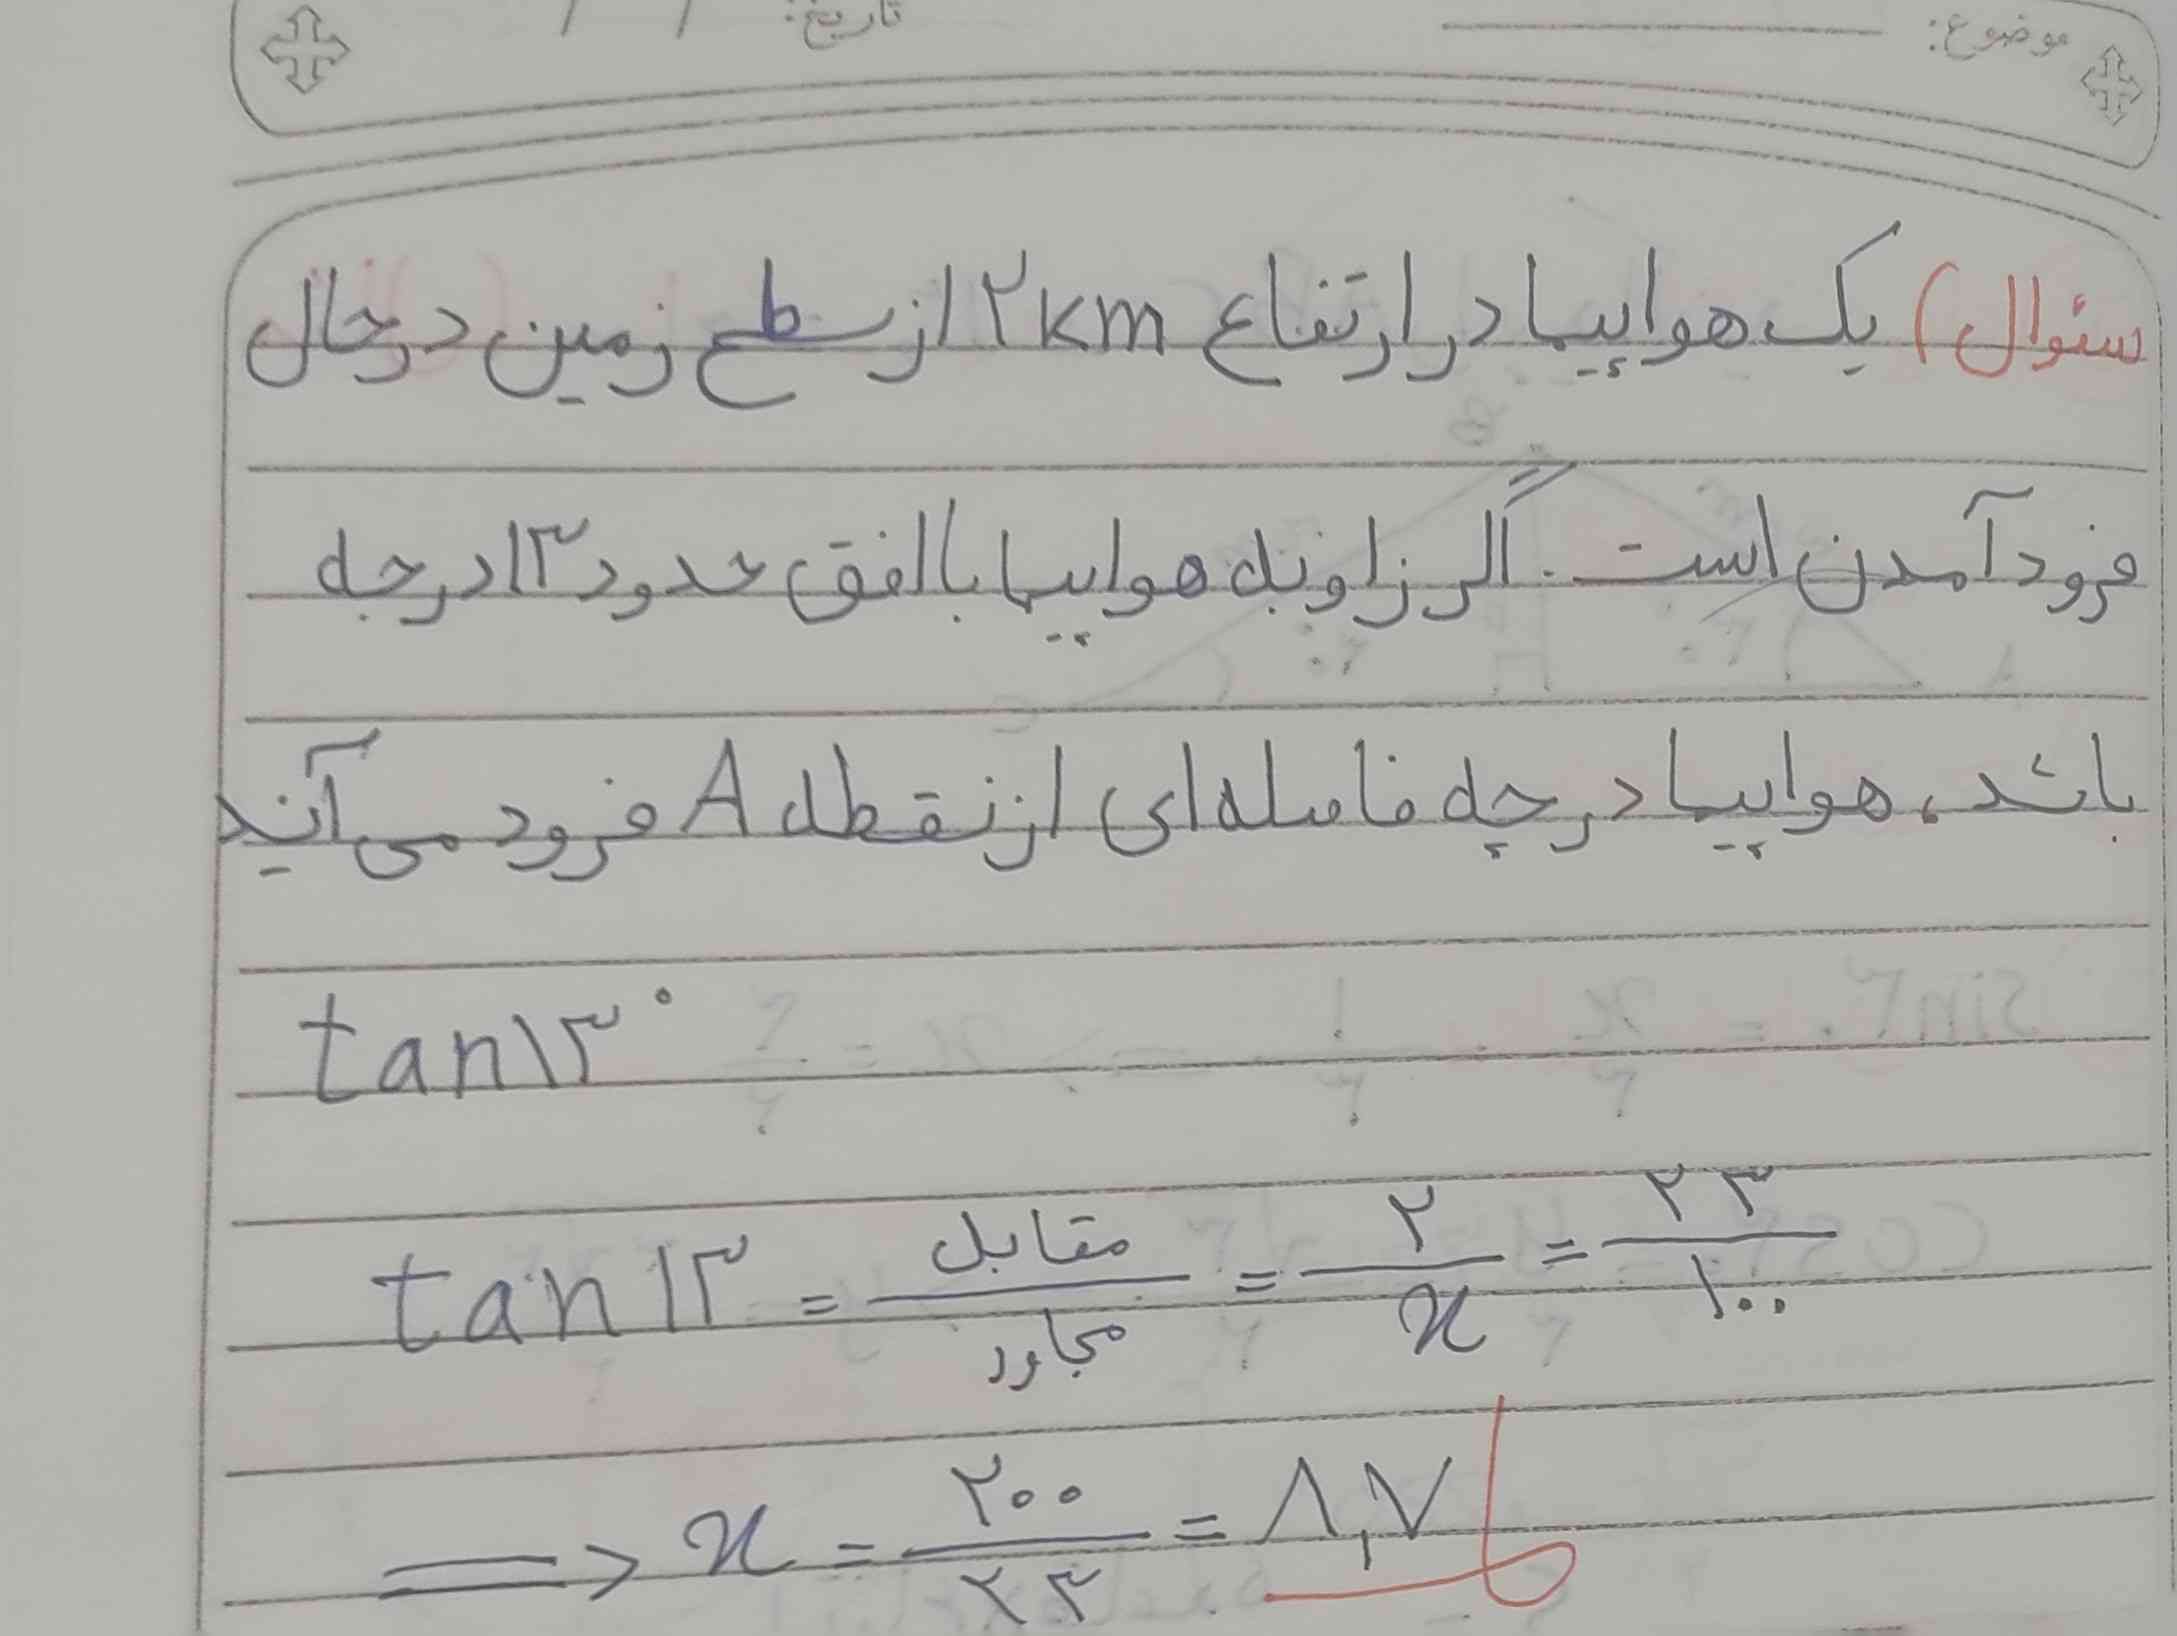 موضوع: تاریخ: / /
سئوال) یک هواپیما در ارتفاع ۲km از سطح زمین درحال
فرود آمدن است. اگر زاویه هواپیما با افق حدود ۱۳ درجه
باشد، هواپیما در چه فاصله ای از نقطه A فرود می آید
tan۱۳°
tan ۱۳ = مقابل / مجاور = ۲ / x = ۲۳ / ۱۰۰
=> x = ۲۰۰ / ۲۳ = ۸,۷